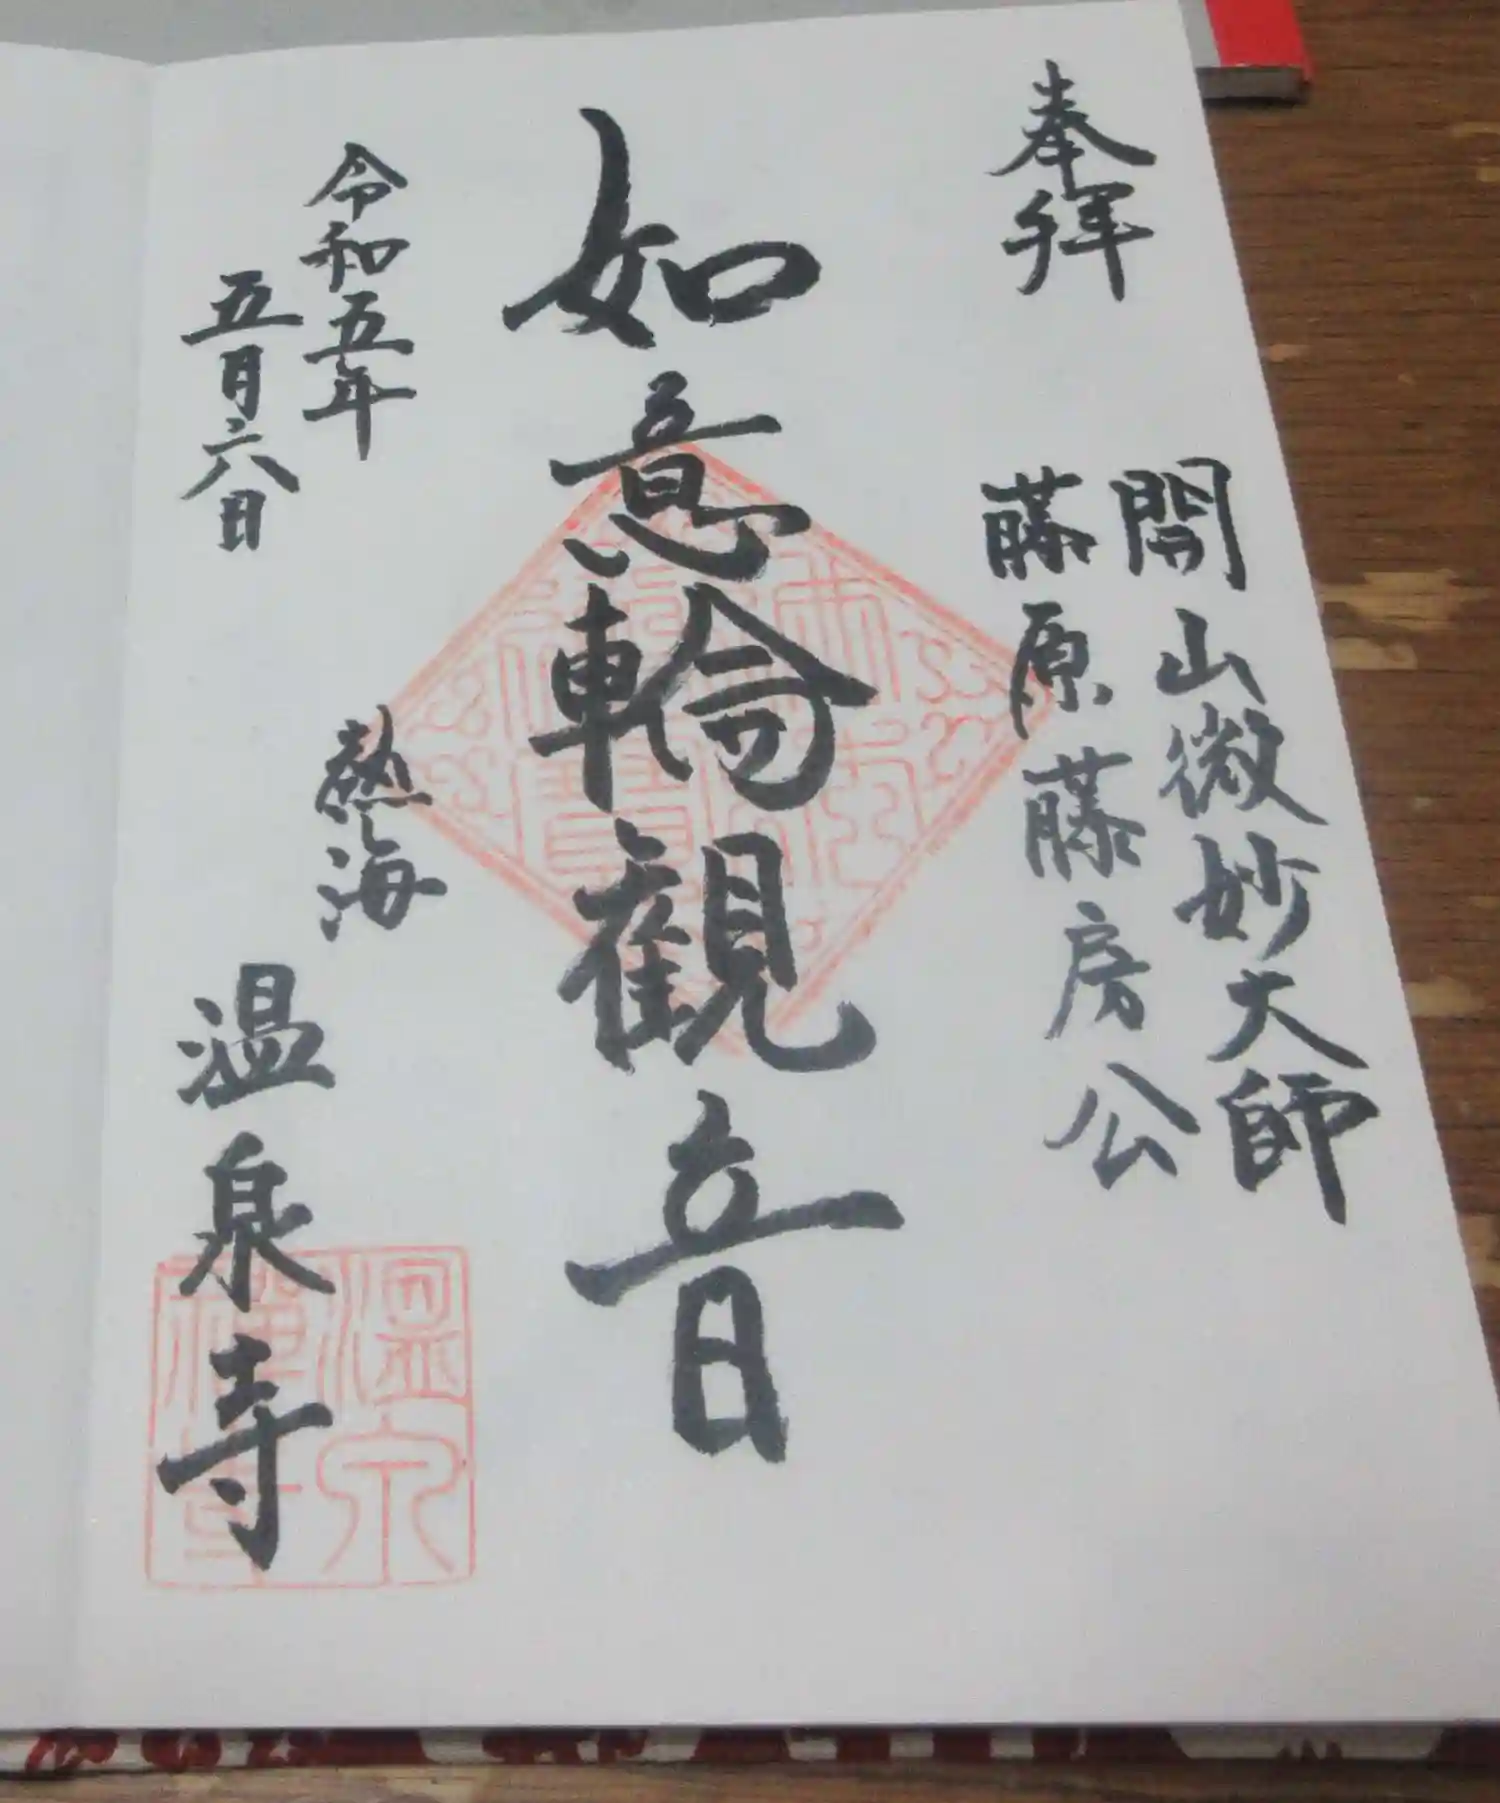 奉拝
開山微妙大師
藤原藤房公
如意輪観音
令和五年
五月六日
熱海
温泉寺
温泉
禅寺